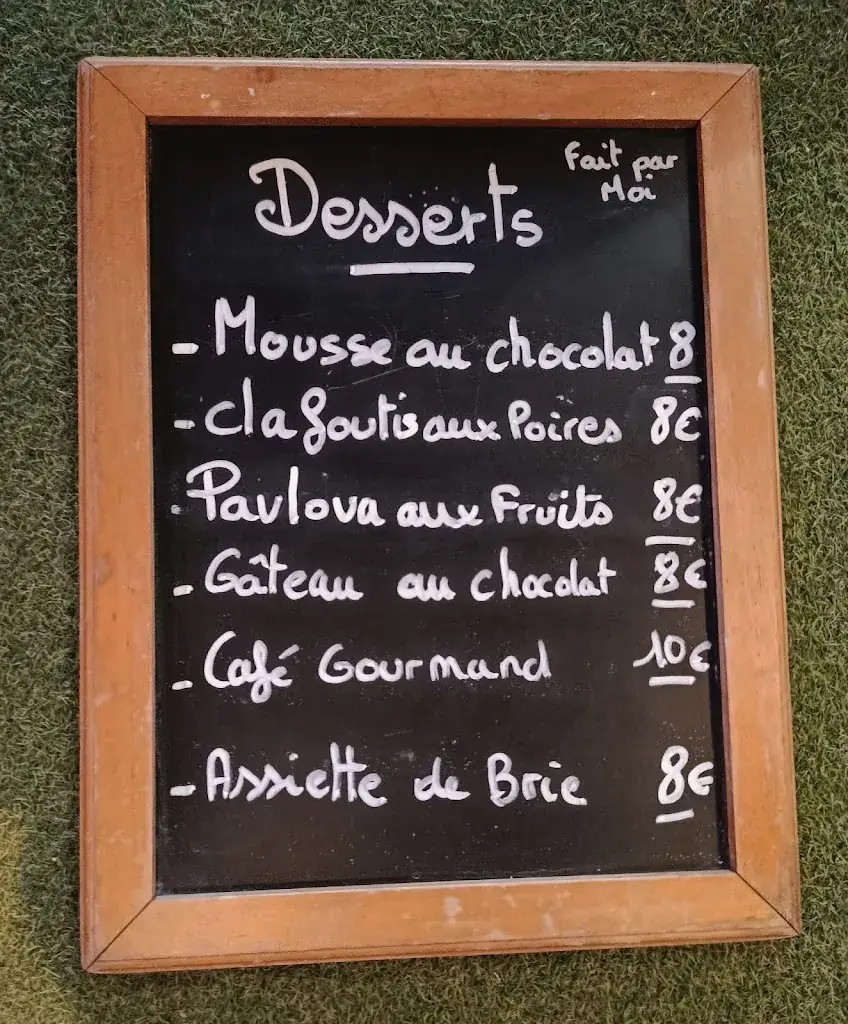 Fait par
Moi
Desserts
- Mousse au chocolat 8
- Clafoutis aux Poires 8€
- Pavlova aux Fruits 8€
- Gâteau au chocolat 8€
- Café Gourmand 10€
- Assiette de Brie 8€